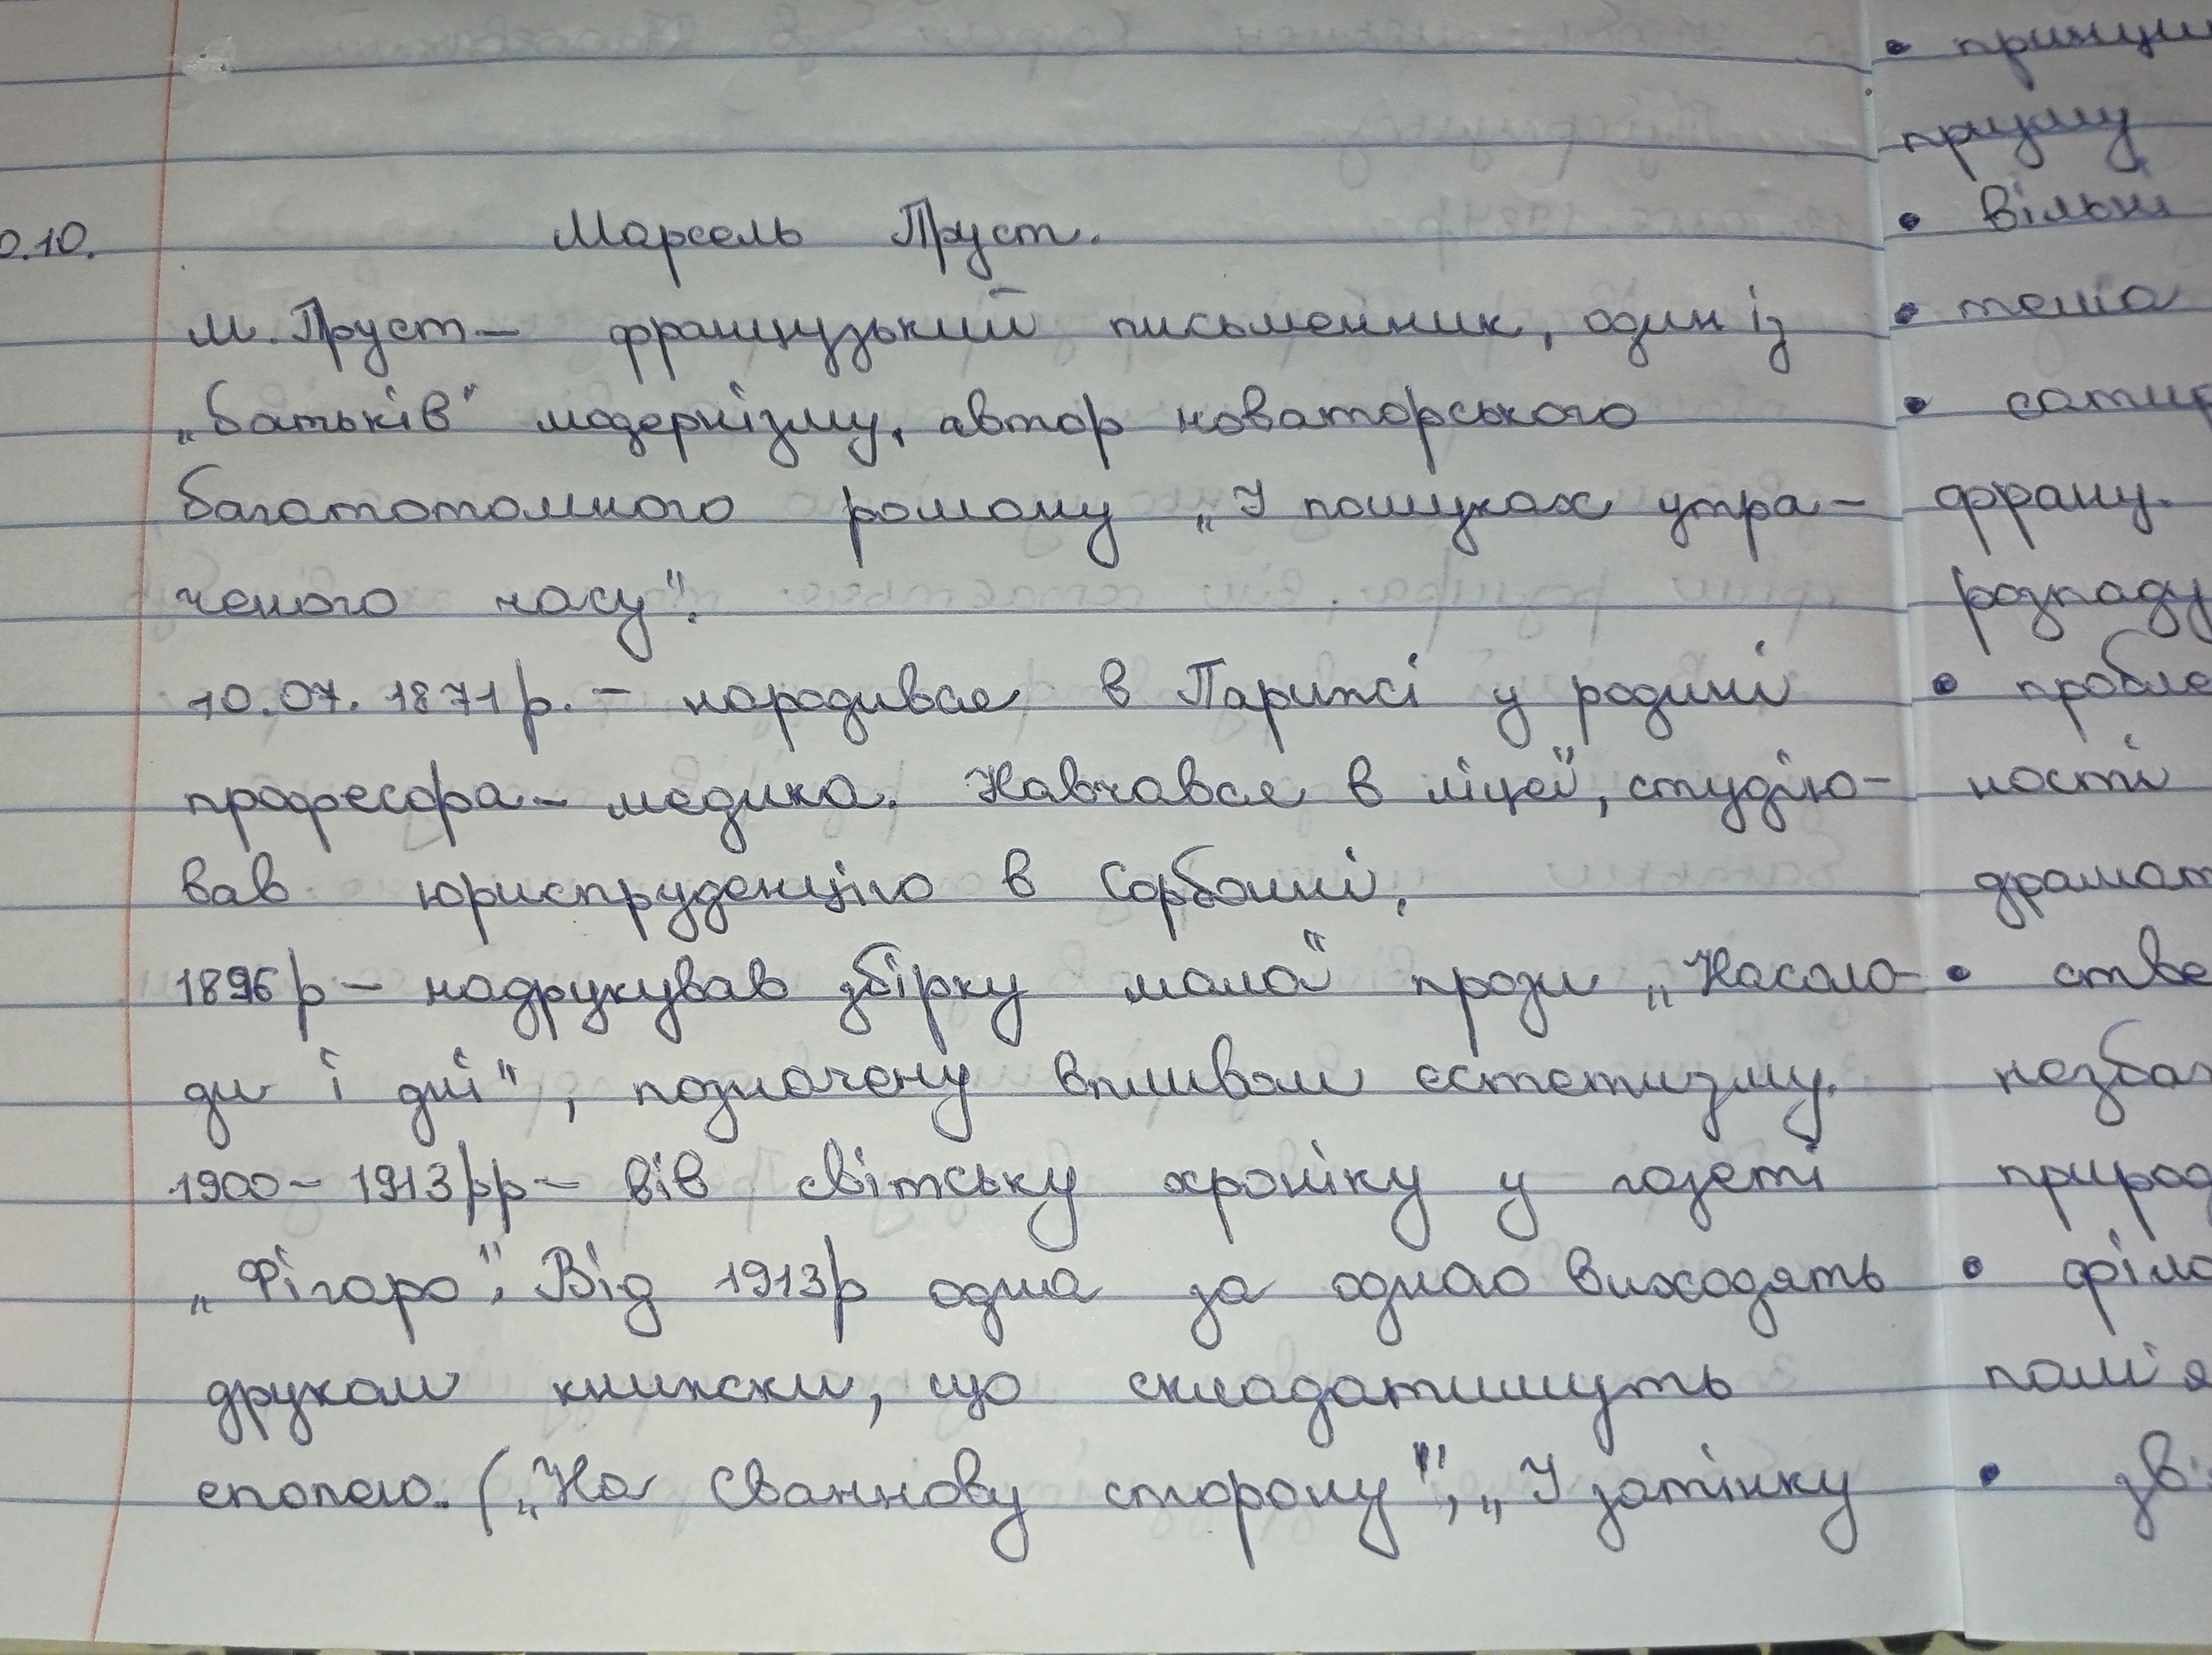 0.10. Марсель Пруст.
М. Пруст — французький письменник, один із
„батьків" модернізму, автор новаторського
багатотомного роману „У пошуках утра-
ченого часу".
10.07.1871 р. — народився в Парижі у родині
професора-медика. Навчався в ліцеї, студію-
вав юриспруденцію в Сорбонні.
1896 р — надрукував збірку малої прози „Насоло-
ди і дні", позначену впливом естетизму.
1900 — 1913 рр — вів світську хроніку у газеті
„Фігаро". Від 1913р одна за одною виходять
друком книжки, що складатимуть
епопею. („На Сваннову сторону", „У затінку
• принци
призму
• вільні
• тема
• сатир
франц.
розпаду
• пробле
ності
драмат
• ство
незба
природ
• філо
пам'я
• зві